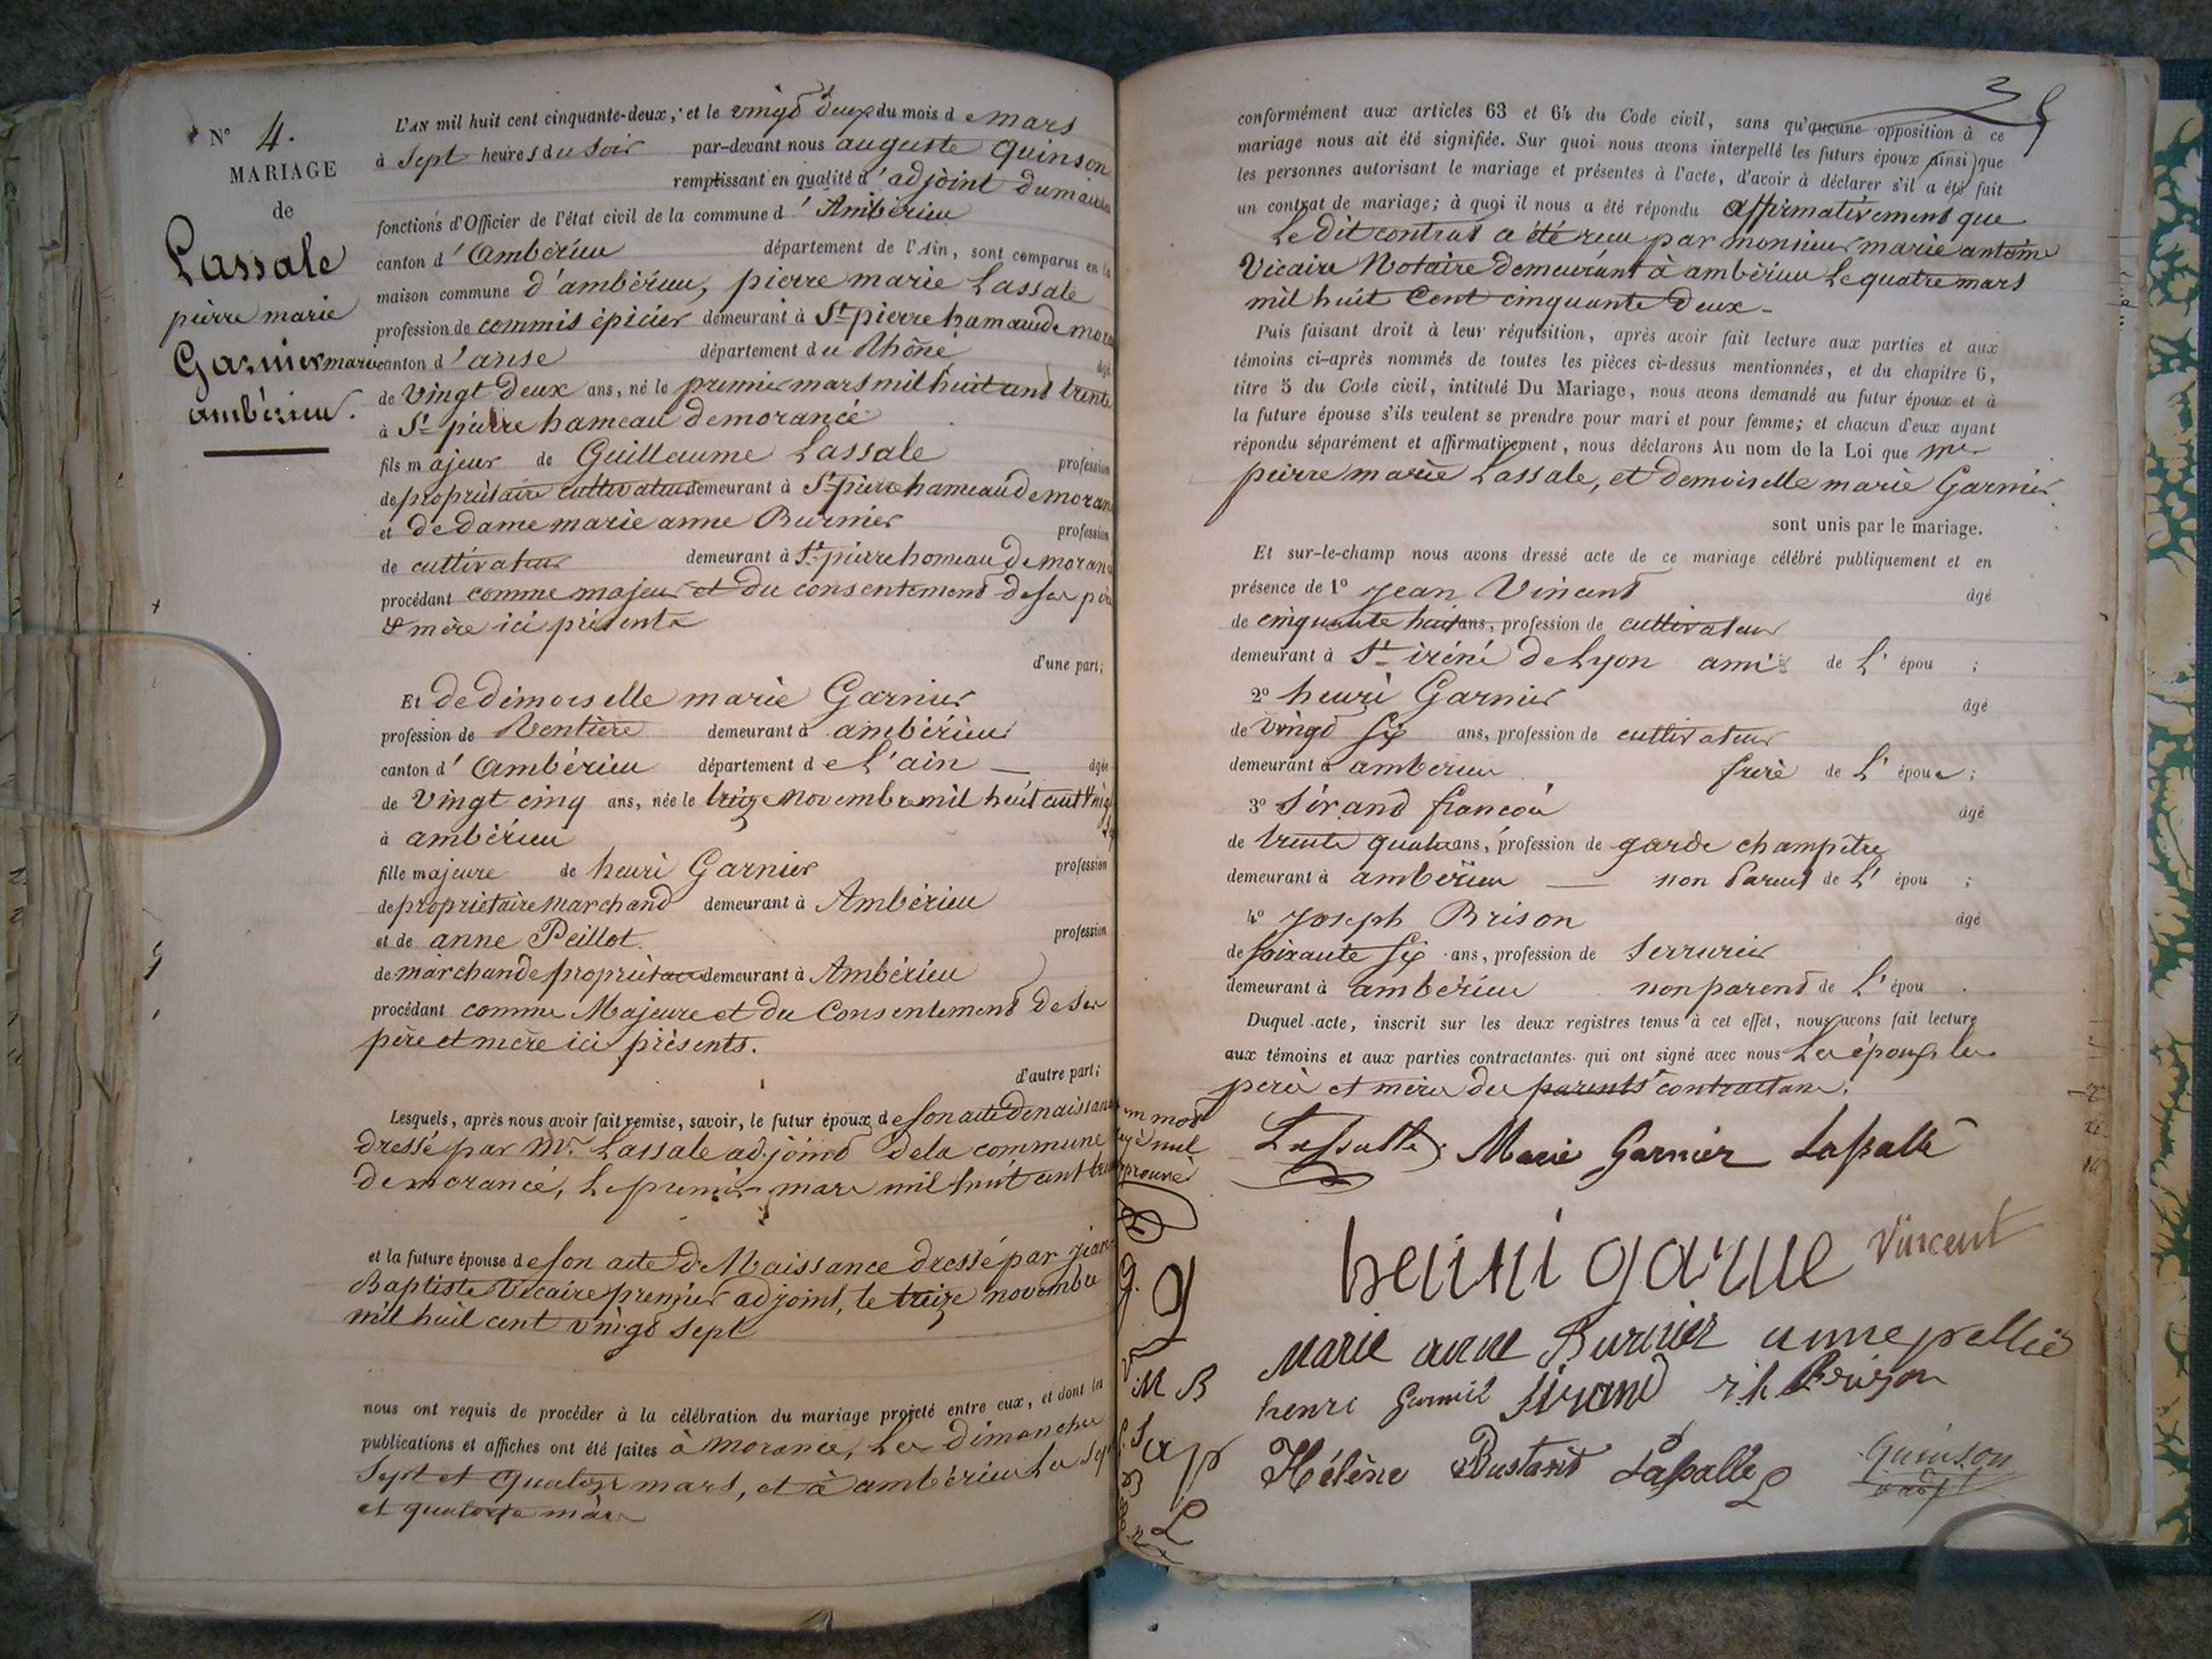 N° 4.
MARIAGE
de
Lassale
pierre marie
Garnier marie
ambérieu.
L'AN mil huit cent cinquante-deux, et le vingt deux du mois de mars
à Sept heures du Soir par-devant nous auguste Quinson
remplissant en qualité d'adjoint du maire
fonctions d'Officier de l'état civil de la commune d'Ambérieu
canton d'Ambérieu département de l'Ain, sont comparus en la
maison commune d'ambérieu, pierre marie Lassale
profession de commis épicier demeurant à St pierre hamau de mora
canton d'anse département du Rhône agé
de Vingt Deux ans, né le premier mars mil huit cent trente
à St pierre hameau de morancé
fils majeur de Guillaume Lassale profession
de propriétaire cultivateur demeurant à St pierre hameau de moran
et de dame marie anne Burnier profession
de cultivateur demeurant à St pierre homeau de moran
procédant comme majeur et du consentement de ses père
& mère ici présents
d'une part;
Et de demoiselle marie Garnier
profession de Rentière demeurant à ambérieu
canton d'Ambérieu département de l'ain — âgée
de Vingt cinq ans, née le treize Novembre mil huit cent vingt
à ambérieu
fille majeure de henri Garnier profession
de propriétaire marchand demeurant à Ambérieu
et de anne Peillot profession
de marchande propriétaire demeurant à Ambérieu
procédant comme Majeure et du Consentement de ses
père et mère ici présents.
d'autre part;
Lesquels, après nous avoir fait remise, savoir, le futur époux de son acte de naissance
dressé par Mr. Lassale adjoind de la commune
de morancé, le premier mars mil huit cent trente
et la future épouse de son acte de Naissance dressé par jean
Baptiste Vicaire premier adjoint, le treize novembre
mil huit cent vingt sept
nous ont requis de procéder à la célébration du mariage projeté entre eux, et dont les
publications et affiches ont été faites à morancé, les dimanches
Sept et quatorze mars, et à ambérieu les sept
et quatorze mars
conformément aux articles 63 et 64 du Code civil, sans qu'aucune opposition à ce
mariage nous ait été signifiée. Sur quoi nous avons interpellé les futurs époux ainsi que
les personnes autorisant le mariage et présentes à l'acte, d'avoir à déclarer s'il a été fait
un contrat de mariage; à quoi il nous a été répondu affirmativement que
le dit contrat a été reçu par monsieur marie antoine
Vicaire Notaire demeurant à ambérieu le quatre mars
mil huit Cent cinquante Deux.
Puis faisant droit à leur réquisition, après avoir fait lecture aux parties et aux
témoins ci-après nommés de toutes les pièces ci-dessus mentionnées, et du chapitre 6,
titre 5 du Code civil, intitulé Du Mariage, nous avons demandé au futur époux et à
la future épouse s'ils veulent se prendre pour mari et pour femme; et chacun d'eux ayant
répondu séparément et affirmativement, nous déclarons Au nom de la Loi que mr
pierre marie Lassale, et demoiselle marie Garnier
sont unis par le mariage.
Et sur-le-champ nous avons dressé acte de ce mariage célébré publiquement et en
présence de 1° Jean Vincent âgé
de cinquante huit ans, profession de cultivateur
demeurant à St iréné de Lyon ami de L'épou ;
2° henri Garnier âgé
de vingt six ans, profession de cultivateur
demeurant à ambérieu frère de L'épouse ;
3° Sirand françois âgé
de trente quatre ans, profession de garde champêtre
demeurant à ambérieu — non Parent de L'épou ;
4° Joseph Brison âgé
de soixante six ans, profession de Serrurier
demeurant à ambérieu non parent de L'épou .
Duquel acte, inscrit sur les deux registres tenus à cet effet, nous avons fait lecture
aux témoins et aux parties contractantes qui ont signé avec nous Les époux, les
père et mère des parents contractans.
Lassalle Marie Garnier Lassalle
henri garnie Vincent
Marie anne Burnier anne pellié
henri Garnier Sirand j.h Brison
Hélène Dustard Lassalle Quinson
adjt